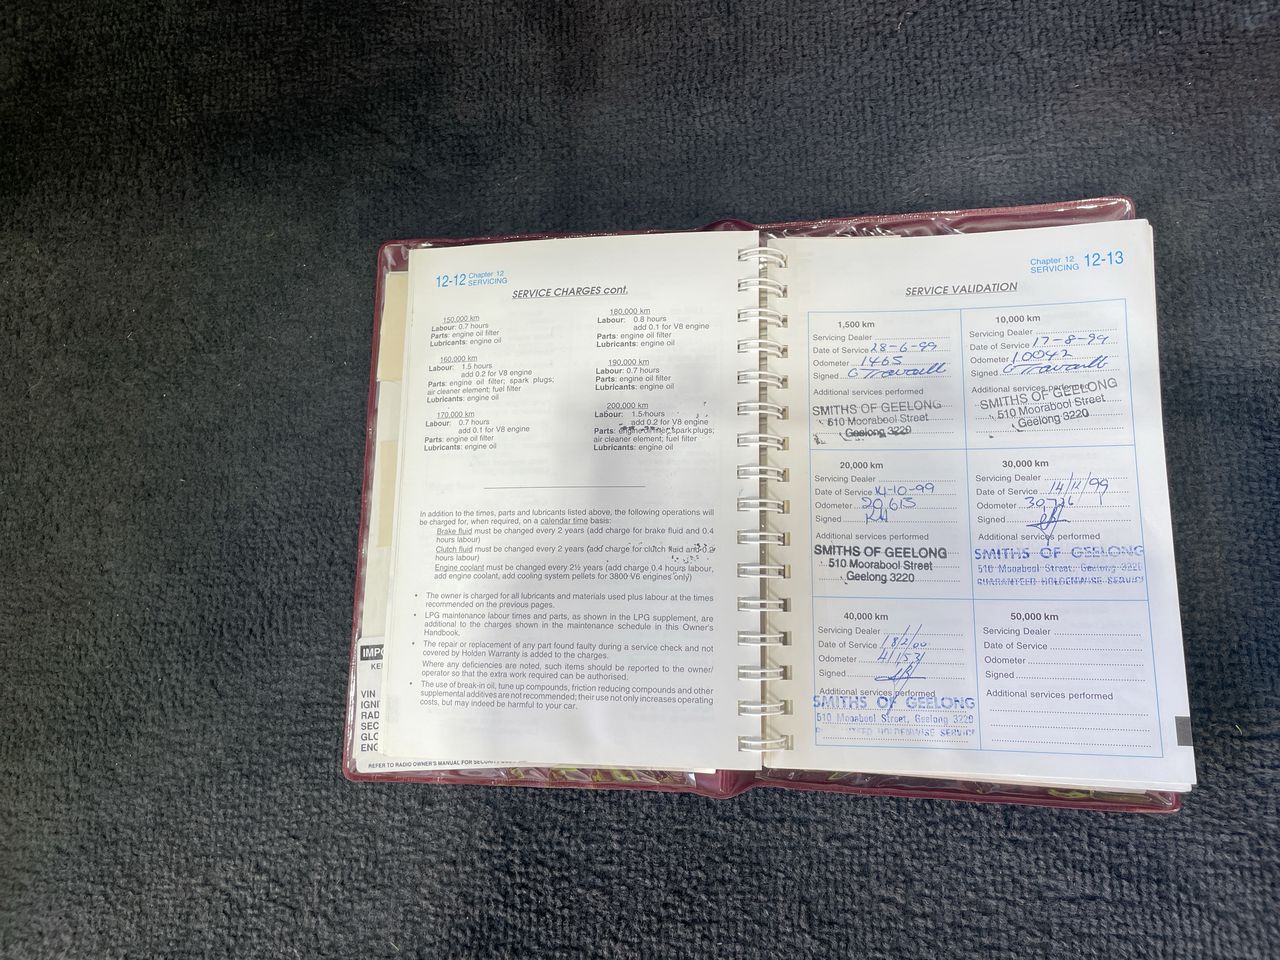 12-12 Chapter 12
SERVICING
SERVICE CHARGES cont.
150,000 km
Labour: 0.7 hours
Parts: engine oil filter
Lubricants: engine oil
160,000 km
Labour: 1.5 hours
add 0.2 for V8 engine
Parts: engine oil filter; spark plugs;
air cleaner element; fuel filter
Lubricants: engine oil
170,000 km
Labour: 0.7 hours
add 0.1 for V8 engine
Parts: engine oil filter
Lubricants: engine oil
180,000 km
Labour: 0.8 hours
add 0.1 for V8 engine
Parts: engine oil filter
Lubricants: engine oil
190,000 km
Labour: 0.7 hours
Parts: engine oil filter
Lubricants: engine oil
200,000 km
Labour: 1.5 hours
add 0.2 for V8 engine
Parts: engine oil filter; spark plugs;
air cleaner element; fuel filter
Lubricants: engine oil
In addition to the times, parts and lubricants listed above, the following operations will
be charged for, when required, on a calendar time basis:
Brake fluid must be changed every 2 years (add charge for brake fluid and 0.4
hours labour)
Clutch fluid must be changed every 2 years (add charge for clutch fluid and
hours labour)
Engine coolant must be changed every 2½ years (add charge 0.4 hours labour,
add engine coolant, add cooling system pellets for 3800 V6 engines only)
• The owner is charged for all lubricants and materials used plus labour at the times
recommended on the previous pages.
• LPG maintenance labour times and parts, as shown in the LPG supplement, are
additional to the charges shown in the maintenance schedule in this Owner's
Handbook.
• The repair or replacement of any part found faulty during a service check and not
covered by Holden Warranty is added to the charges.
Where any deficiencies are noted, such items should be reported to the owner/
operator so that the extra work required can be authorised.
• The use of break-in oil, tune up compounds, friction reducing compounds and other
supplemental additives are not recommended; their use not only increases operating
costs, but may indeed be harmful to your car.
IMPO
KE
VIN
IGNI
RAD
SEC
GLO
ENG
REFER TO RADIO OWNER'S MANUAL FOR
Chapter 12 12-13
SERVICING
SERVICE VALIDATION
1,500 km
Servicing Dealer
Date of Service 28-6-99
Odometer 1465
Signed G Travaill
Additional services performed
SMITHS OF GEELONG
510 Moorabool Street
Geelong 3220
10,000 km
Servicing Dealer
Date of Service 17-8-99
Odometer 10042
Signed G Travaill
Additional services performed
SMITHS OF GEELONG
510 Moorabool Street
Geelong 3220
20,000 km
Servicing Dealer
Date of Service 14-10-99
Odometer 20,613
Signed
Additional services performed
SMITHS OF GEELONG
510 Moorabool Street
Geelong 3220
30,000 km
Servicing Dealer
Date of Service 14/12/99
Odometer 30726
Signed
Additional services performed
SMITHS OF GEELONG
510 Moorabool Street, Geelong 3220
GUARANTEED HOLDENWISE SERVICE
40,000 km
Servicing Dealer
Date of Service 18/2/00
Odometer 41153
Signed
Additional services performed
SMITHS OF GEELONG
510 Moorabool Street, Geelong 3220
HOLDENWISE SERVICE
50,000 km
Servicing Dealer
Date of Service
Odometer
Signed
Additional services performed